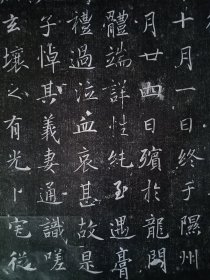 十月一日終于隰州
月廿四日殯於龍門
體端詳性純至遇膏
禮過泣血哀甚故是
子悼其義妻通識嗟
玄壤之有光卜宅從